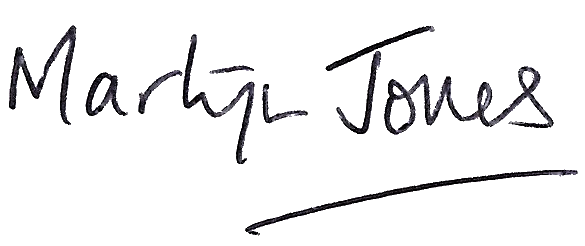 Martyn Jones